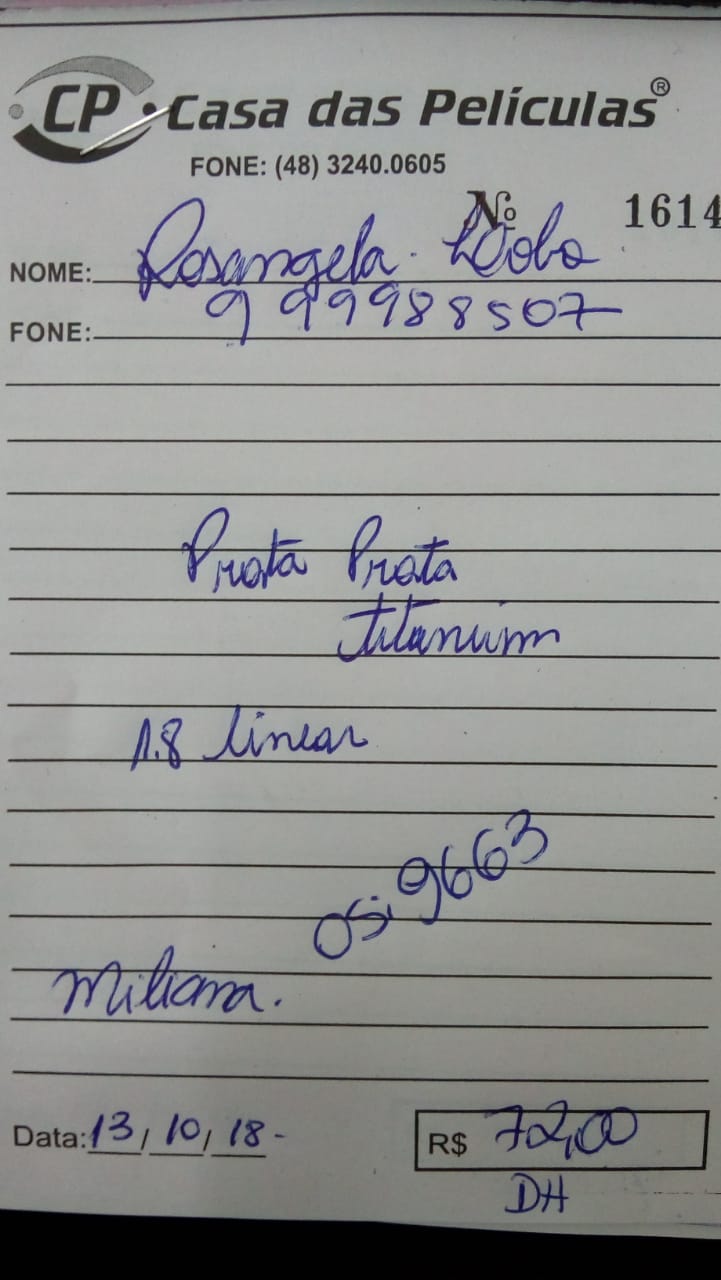 CP Casa das Películas®
FONE: (48) 3240.0605
Nº 1614
NOME: Rosangela
FONE: 9 99988507
Prata Prata
titanium
1.8 linear
OS: 9663
Data: 13/10/18-
R$ 72,00
DH